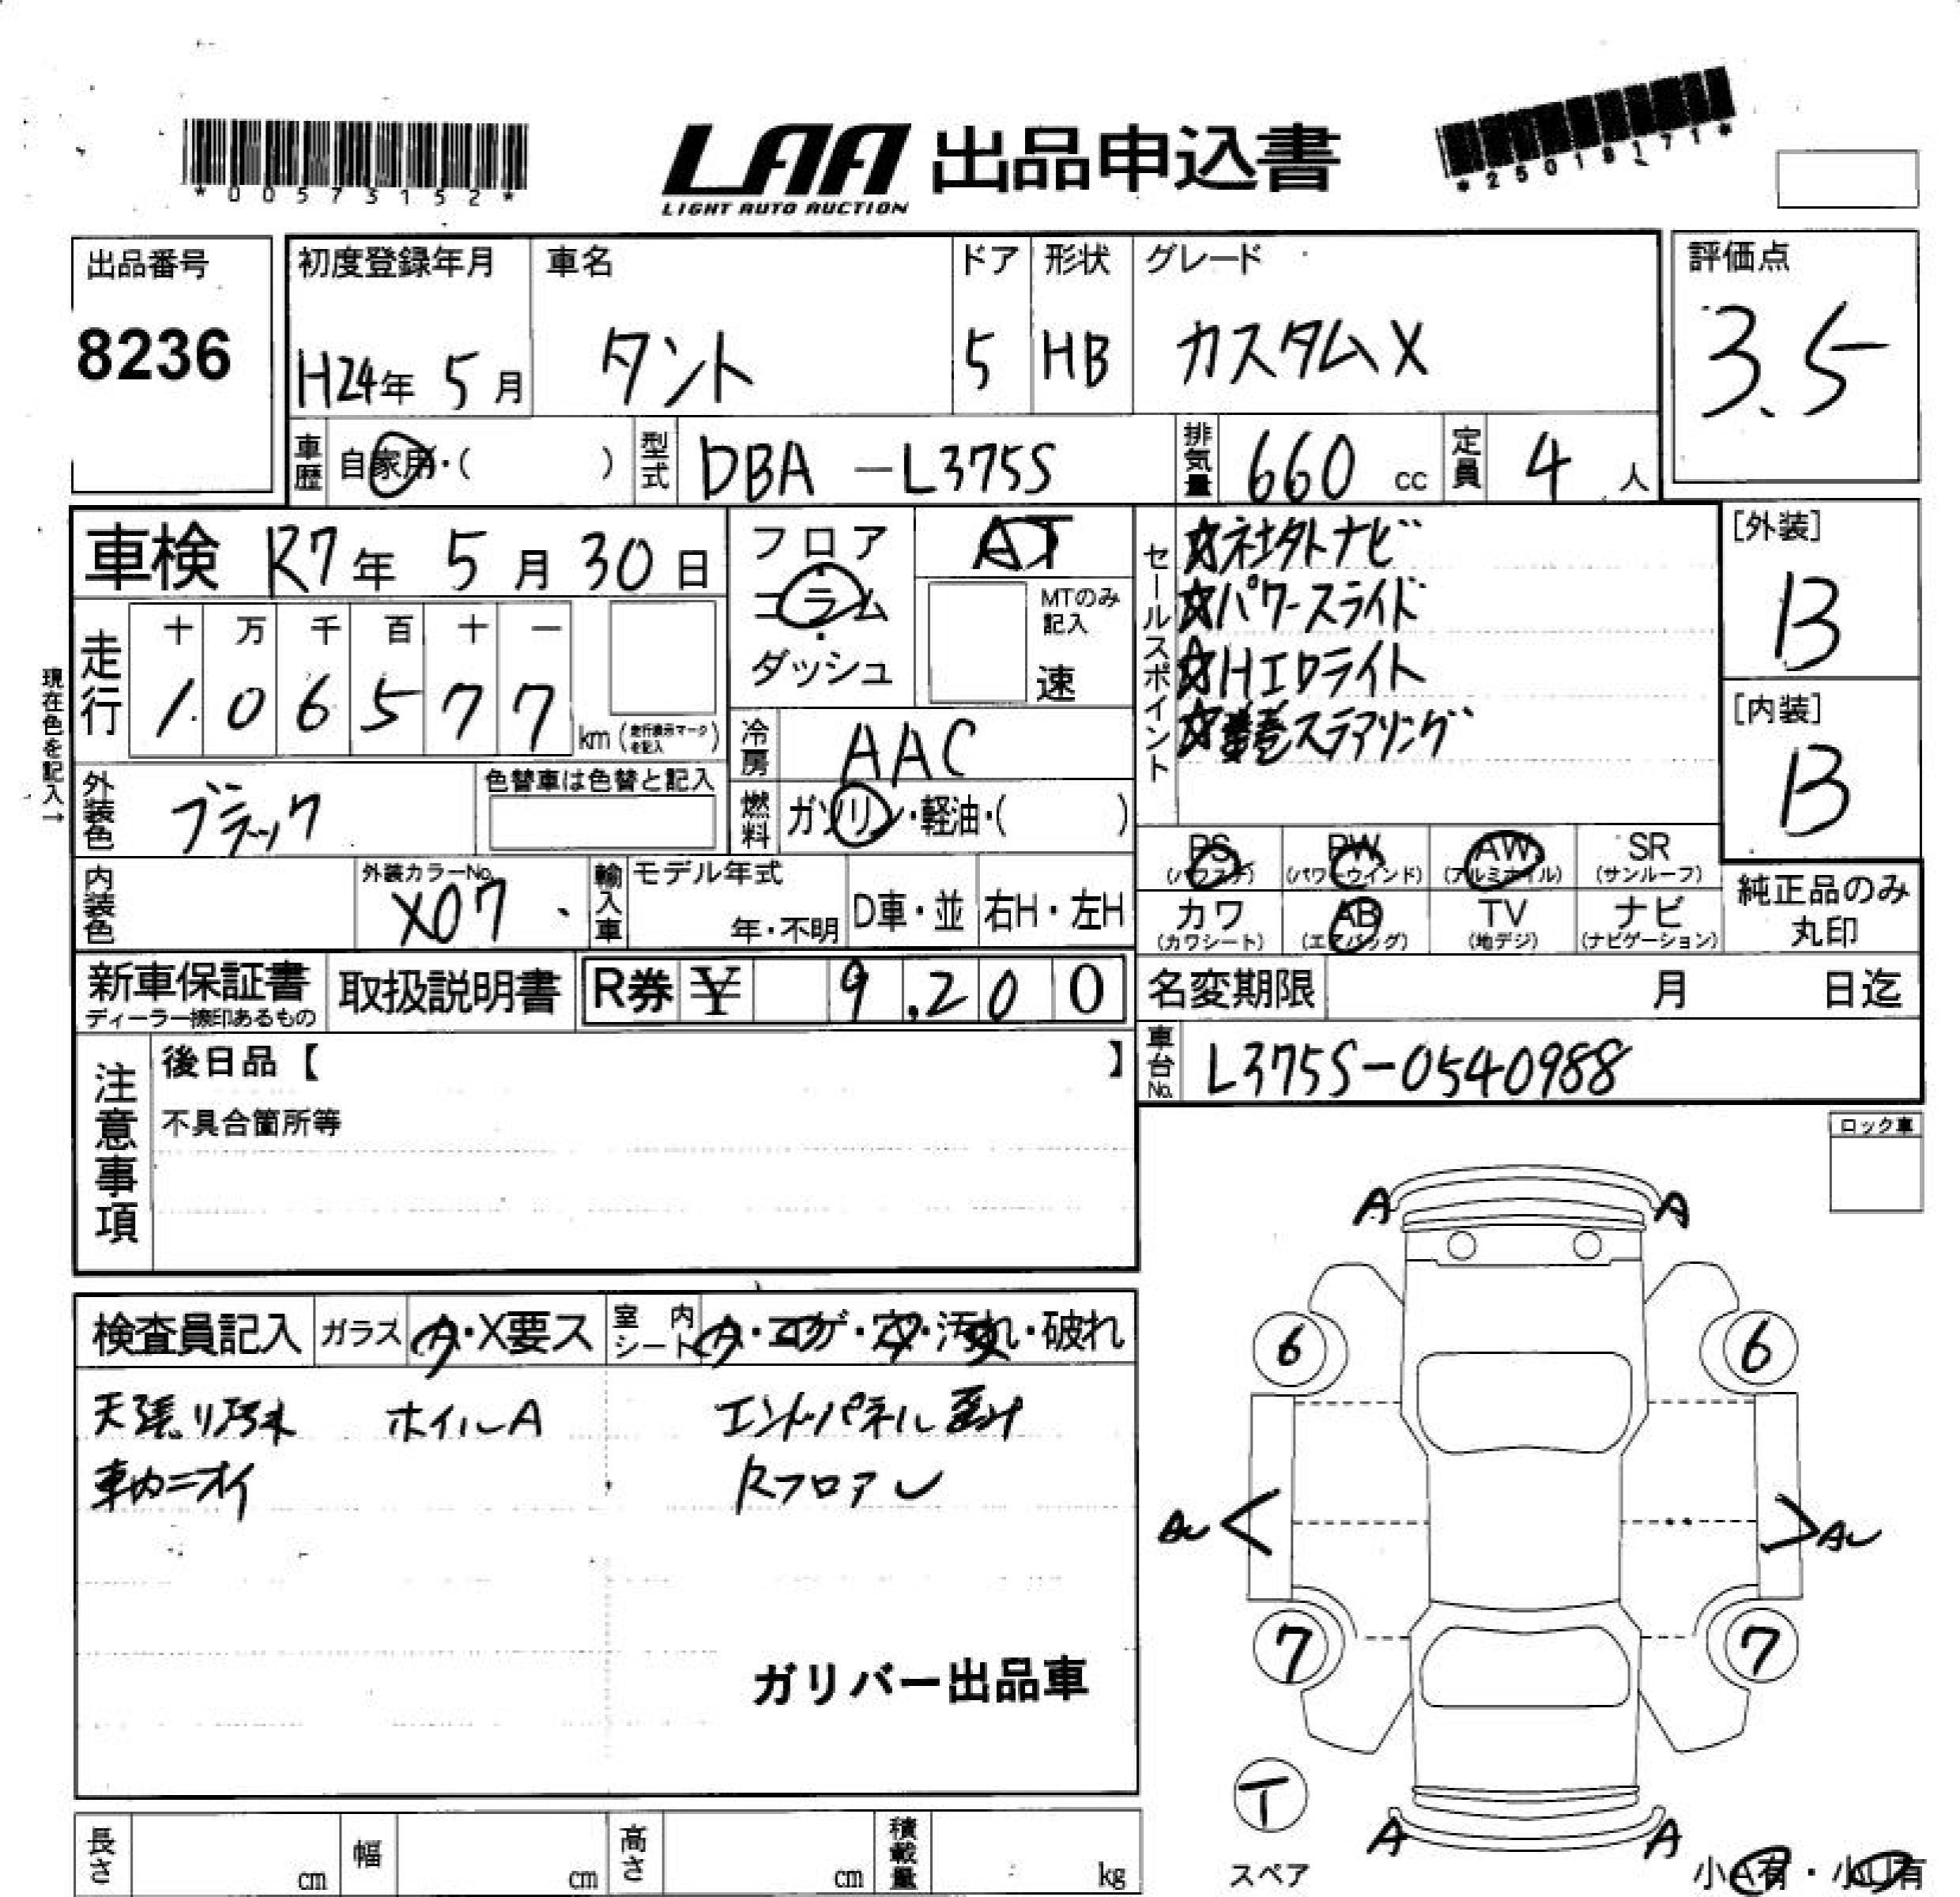 *00573152*
LAA 出品申込書
LIGHT AUTO AUCTION
*25018171*
出品番号
8236
初度登録年月
H24年 5月
車名
タント
ドア
5
形状
HB
グレード
カスタムX
評価点
3.5
車歴 自家用・( )
型式 DBA -L375S
排気量 660 cc
定員 4 人
車検 R7年 5月 30日
フロア
コラム
ダッシュ
AT
MTのみ記入
速
セールスポイント
☆社外ナビ
☆パワースライド
☆HIDライト
ステアリング
[外装]
B
[内装]
B
現在色を記入→
走行
十 万 千 百 十 一
1 0 6 5 7 7 km (走行表示マークを記入)
冷房 AAC
燃料 ガソリン・軽油・( )
外装色 ブラック
色替車は色替と記入
内装色
外装カラーNo.
X07
輸入車
モデル年式
年・不明
D車・並
右H・左H
PS
(パワステ)
PW
(パワーウインド)
AW
(アルミホイル)
SR
(サンルーフ)
カワ
(カワシート)
AB
(エアバッグ)
TV
(地デジ)
ナビ
(ナビゲーション)
純正品のみ
丸印
新車保証書
ディーラー捺印あるもの
取扱説明書
R券 ¥ 9.200
名変期限 月 日迄
車台No. L375S-0540988
注意事項
後日品【 】
不具合箇所等
ロック車
検査員記入
ガラス
ア・X要ス
室内シート
ア・コゲ・穴・汚れ・破れ
天張り汚れ ホイルA
車内ニオイ
エンドパネル
RフロアU
ガリバー出品車
A A
6 6
AU AU
7 7
T
スペア
A A
小A有・小U有
長さ cm
幅 cm
高さ cm
積載量 kg